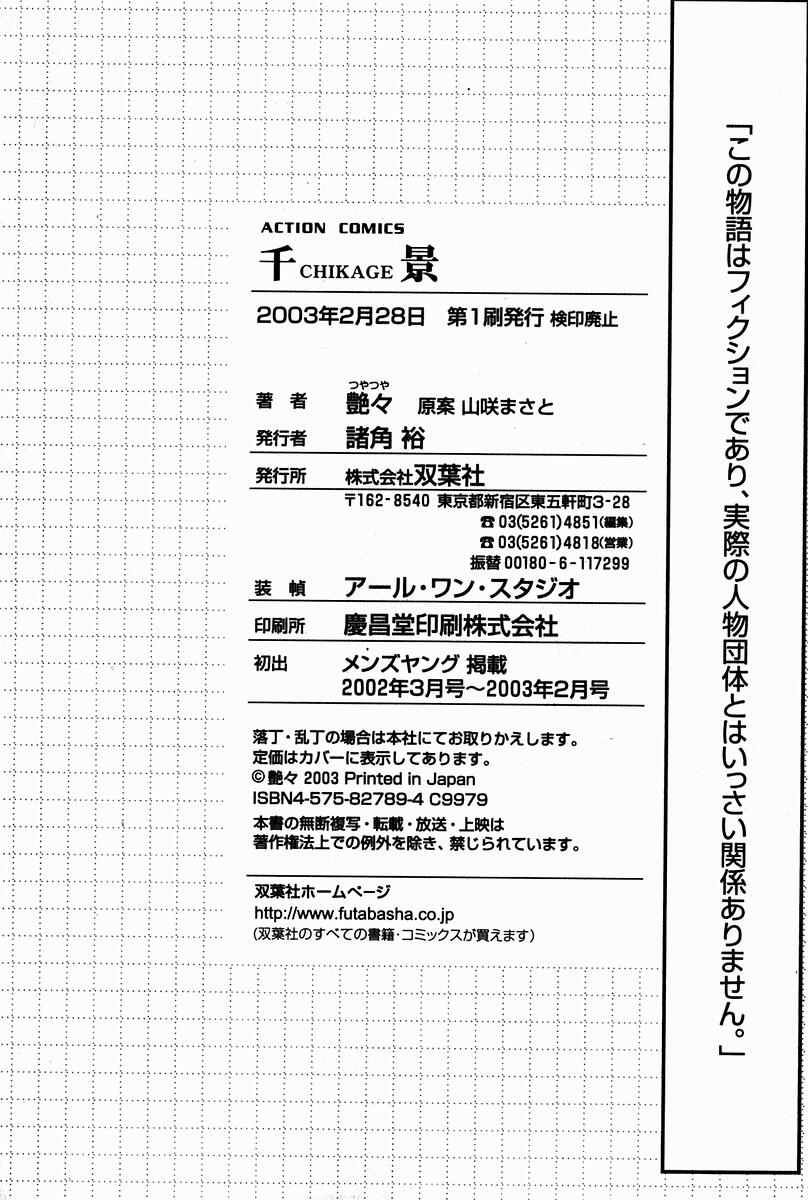 「この物語はフィクションであり、実際の人物団体とはいっさい関係ありません。」
ACTION COMICS
千 CHIKAGE 景
2003年2月28日 第1刷発行 検印廃止
つやつや
著 者 艶々 原案 山咲まさと
発行者 諸角 裕
発行所 株式会社双葉社
〒162-8540 東京都新宿区東五軒町3-28
☎03(5261)4851(編集)
☎03(5261)4818(営業)
振替00180-6-117299
装 幀 アール・ワン・スタジオ
印刷所 慶昌堂印刷株式会社
初出 メンズヤング 掲載
2002年3月号〜2003年2月号
落丁・乱丁の場合は本社にてお取りかえします。
定価はカバーに表示してあります。
©艶々 2003 Printed in Japan
ISBN4-575-82789-4 C9979
本書の無断複写・転載・放送・上映は
著作権法上での例外を除き、禁じられています。
双葉社ホームページ
http://www.futabasha.co.jp
(双葉社のすべての書籍・コミックスが買えます)